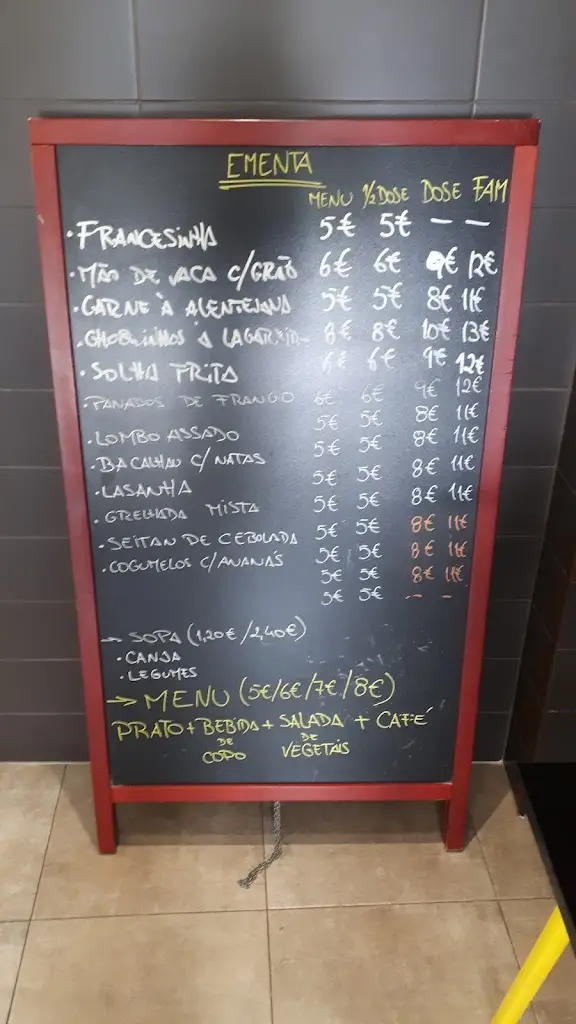 EMENTA
MENU 1/2 DOSE DOSE FAM
• FRANCESINHA 5€ 5€ — —
• MÃO DE VACA C/GRÃO 6€ 6€ 9€ 12€
• CARNE À ALENTEJANA 5€ 5€ 8€ 11€
• À LAGAREIRO 8€ 8€ 10€ 13€
• SOLHA FRITA 6€ 6€ 9€ 12€
• PANADOS DE FRANGO 6€ 6€ 9€ 12€
• LOMBO ASSADO 5€ 5€ 8€ 11€
• BACALHAU C/ NATAS 5€ 5€ 8€ 11€
• LASANHA 5€ 5€ 8€ 11€
• GRELHADA MISTA 5€ 5€ 8€ 11€
• SEITAN DE CEBOLADA 5€ 5€ 8€ 11€
• COGUMELOS C/ANANÁS 5€ 5€ 8€ 11€
5€ 5€ 8€ 11€
5€ 5€ - -
→ SOPA (1,20€/2,40€)
• CANJA
• LEGUMES
→ MENU (5€/6€/7€/8€)
PRATO + BEBIDA + SALADA + CAFÉ
DE DE
COPO VEGETAIS